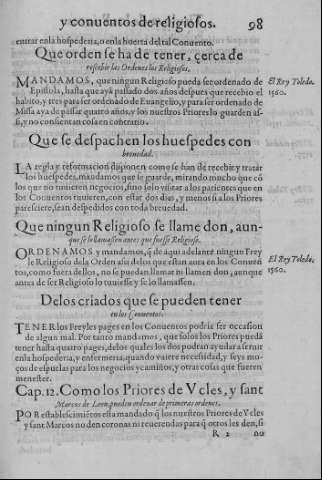 y conuentos de religiosos. 98
entrar enla hospederia, o enla huerta del tal Conuento.
Que orden se ha de tener, çerca de
rescebir las Ordenes los Religiosos.
MANDAMOS, que ningun Religioso pueda ser ordenado de
Epistola, hasta que aya passado dos años despues que recebio el
habito, y tres para ser ordenado de Euangelio, y para ser ordenado de
Missa aya de passar quatro años, y los nuestros Priores lo guarden as-
si, y no consientan cosa en contrario.
El Rey Toledo.
1560.
Que se despachen los huespedes con
breuedad.
LA regla y reformacion disponen como se han de recebir y tratar
los huespedes, mãdamos que se guarde, mirando mucho que cõ
los que no tuuieren negocios, sino solo visitar a los parientes que en
los Conuentos tuuieren, con estar dos dias, y menos si a los Priores
paresciere, sean despedidos con toda breuedad.
Que ningun Religioso se llame don, aun-
que se lo llamassen antes que fuesse Religioso.
ORDENAMOS y mandamos, q̃ de aqui adelante ningun Frey
le Religioso dela Orden assi delos que estan aora en los Conuen
tos, como fuera dellos, no se puedan llamar ni llamen don, aunque
antes de ser Religioso lo tuuiesse y se lo llamassen.
El Rey Toledo.
1560.
Delos criados que se pueden tener
en los Conuentos.
TENER los Freyles pages en los Conuentos podria ser occasion
de algun mal. Por tanto mandamos, que solos los Priores puedã
tener hasta quatro pages, delos quales los dos podran ayudar a seruir
enla hospederia, y enfermeria, quando vuiere necessidad, y seys mo-
ços de espuelas para los negocios y camiños, y otras cosas que fueren
menester.
Cap. 12. Como los Priores de Vcles, y sant
Marcos de Leon pueden ordenar de primeras ordenes.
POR establescimiẽtos esta mandado q̃ los nuestros Priores de Vcles
y sant Marcos no den coronas ni reuerendas para q̃ otros les den, si
R 2 no